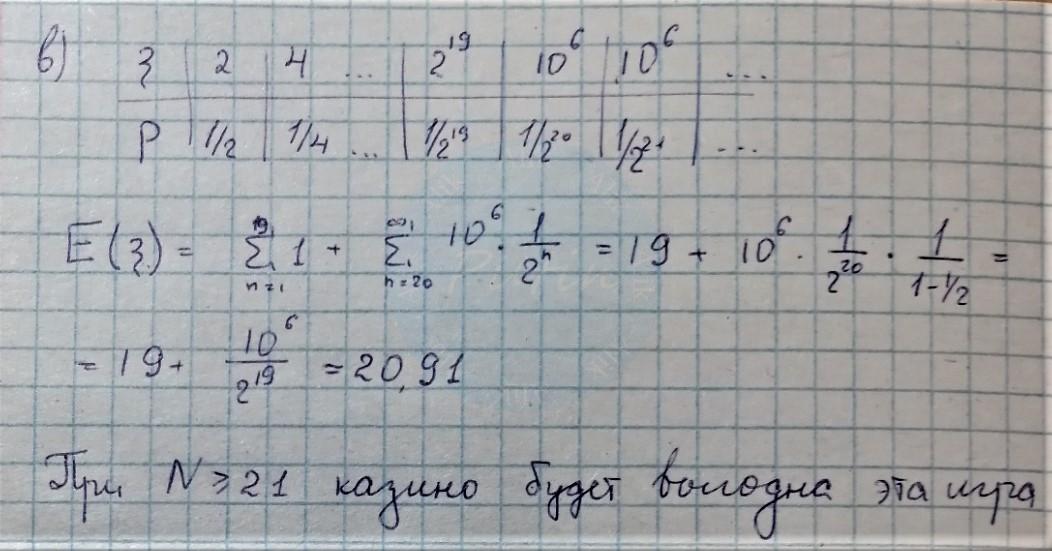 в) ξ | 2 | 4 ... | 2^19 | 10^6 | 10^6 | ...
P | 1/2 | 1/4 ... | 1/2^19 | 1/2^20 | 1/2^21 | ...
E(ξ) = ∑_{n=1}^{19} 1 + ∑_{n=20}^{∞} 10^6 · 1/2^n = 19 + 10^6 · 1/2^20 · 1/(1-1/2) =
= 19 + 10^6/2^19 = 20,91
При N ≥ 21 казино будет выгодна эта игра